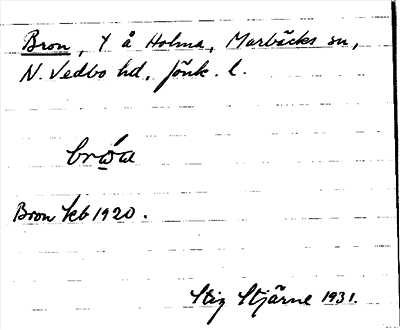 Bron, Y å Holma, Marbäcks sn,
N. Vedbo hd, Jönk. l.
Bron kb 1920.
Stig Stjärne 1931.